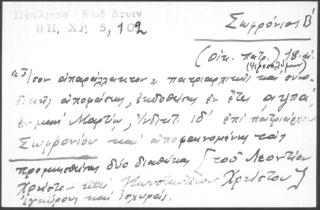 Πουλίτσα Κωδ Δουιν
ΗΠ, ΧΡ. 5, 102
Σωφρόνιος Β'
(Οἰκ. πατρ.) 18 αἰ.
(Ἱεροσολύμων)
"Ἴσον ἀπαράλλακτον" πατριαρχικῆς καὶ συνο-
δικῆς ἀποφάσεως, ἐκδοθείσης ἐν ἔτει αψπα',
ἐν μηνὶ Μαρτίῳ, Ἰνδικτ. ιδ' ἐπὶ πατριάρχου
Σωφρονίου καὶ ἀποφαινομένης τὰς
προμνησθείσας δύο διαθήκας [τοῦ Λεοντίου
Χρίστο- καὶ Κωνσταντίνου Χρίστου]
ἐγκύρους καὶ ἰσχυράς.